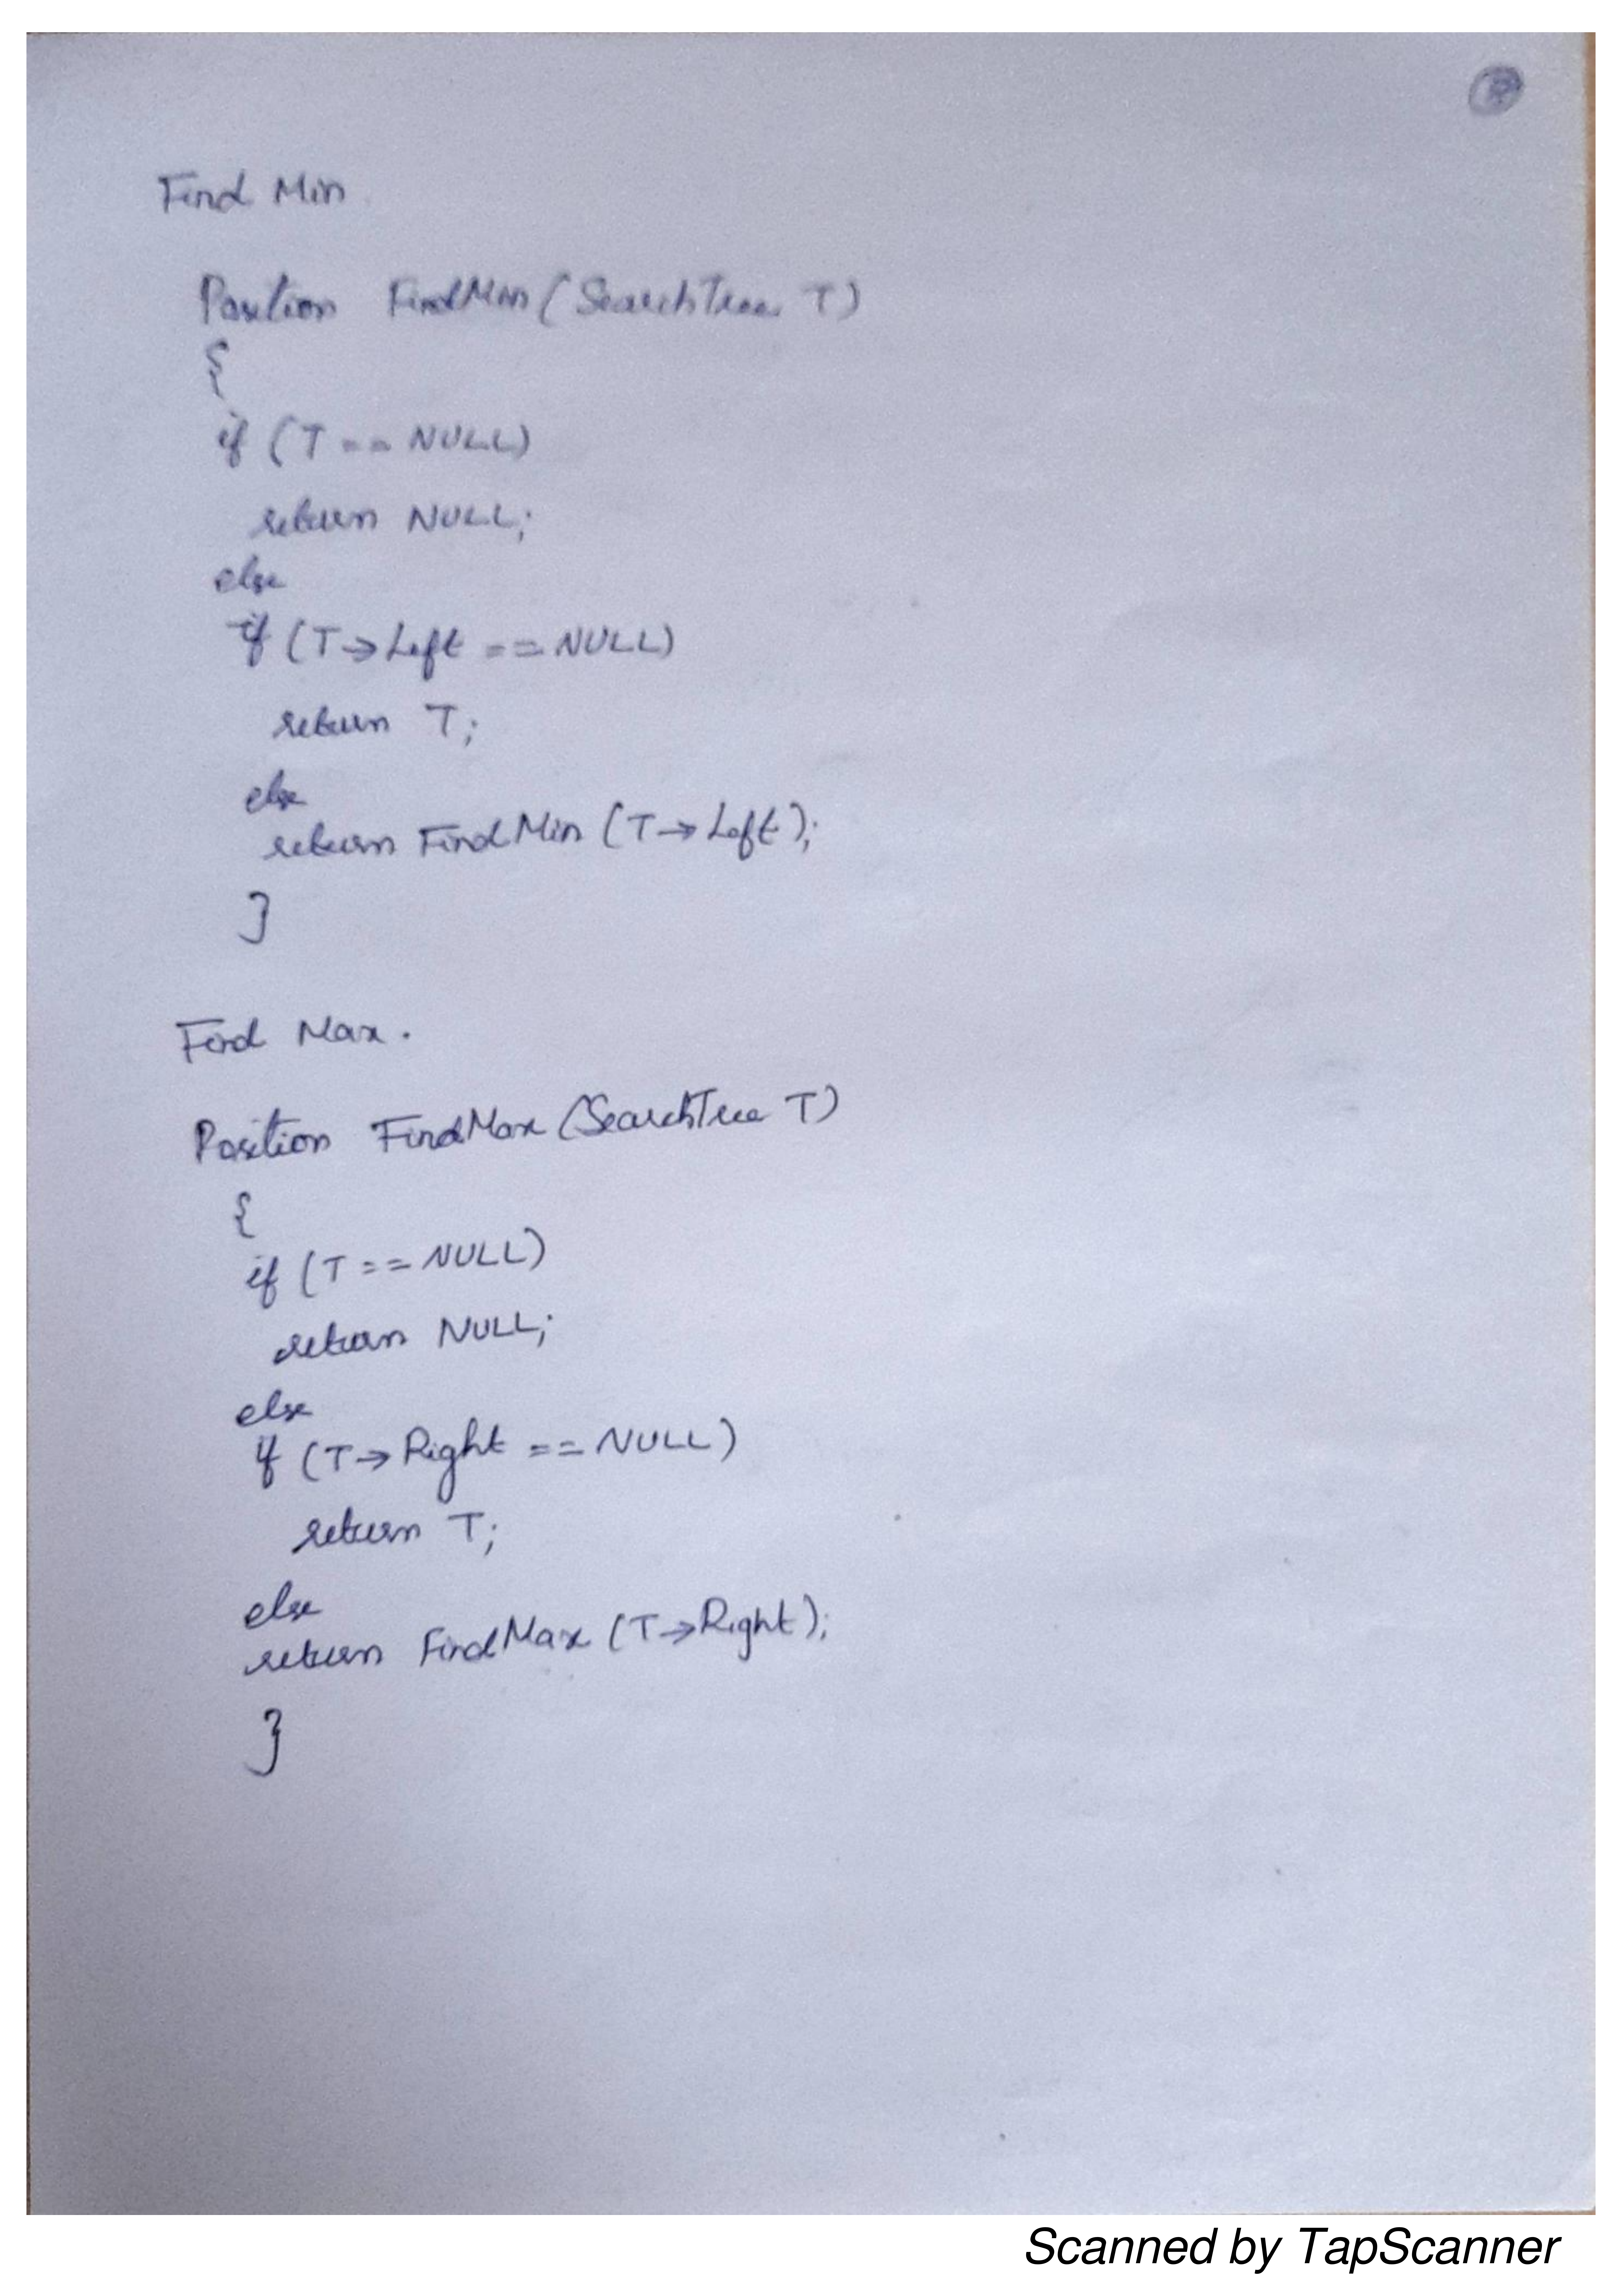 Find Min.
Position FindMin (SearchTree T)
{
if (T == NULL)
return NULL;
else
if (T→Left == NULL)
return T;
else
return FindMin (T→Left);
}
Find Max.
Position FindMax (SearchTree T)
{
if (T == NULL)
return NULL;
else
if (T→Right == NULL)
return T;
else
return FindMax (T→Right);
}
Scanned by TapScanner